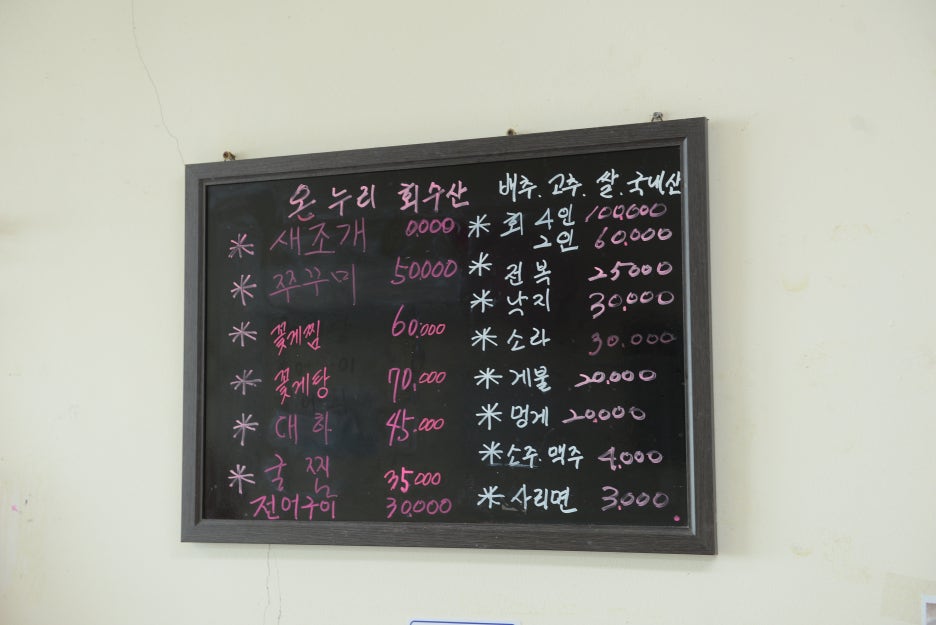 온누리 회수산
새조개 0,000
쭈꾸미 50000
꽃게찜 60,000
꽃게탕 70,000
대하 45,000
굴찜 35000
전어구이 30,000
배추.고추.쌀.국내산
회 4인 100,000
2인 60,000
전복 25000
낙지 30,000
소라 30,000
게불 20,000
멍게 20,000
소주.맥주 4,000
사리면 3,000